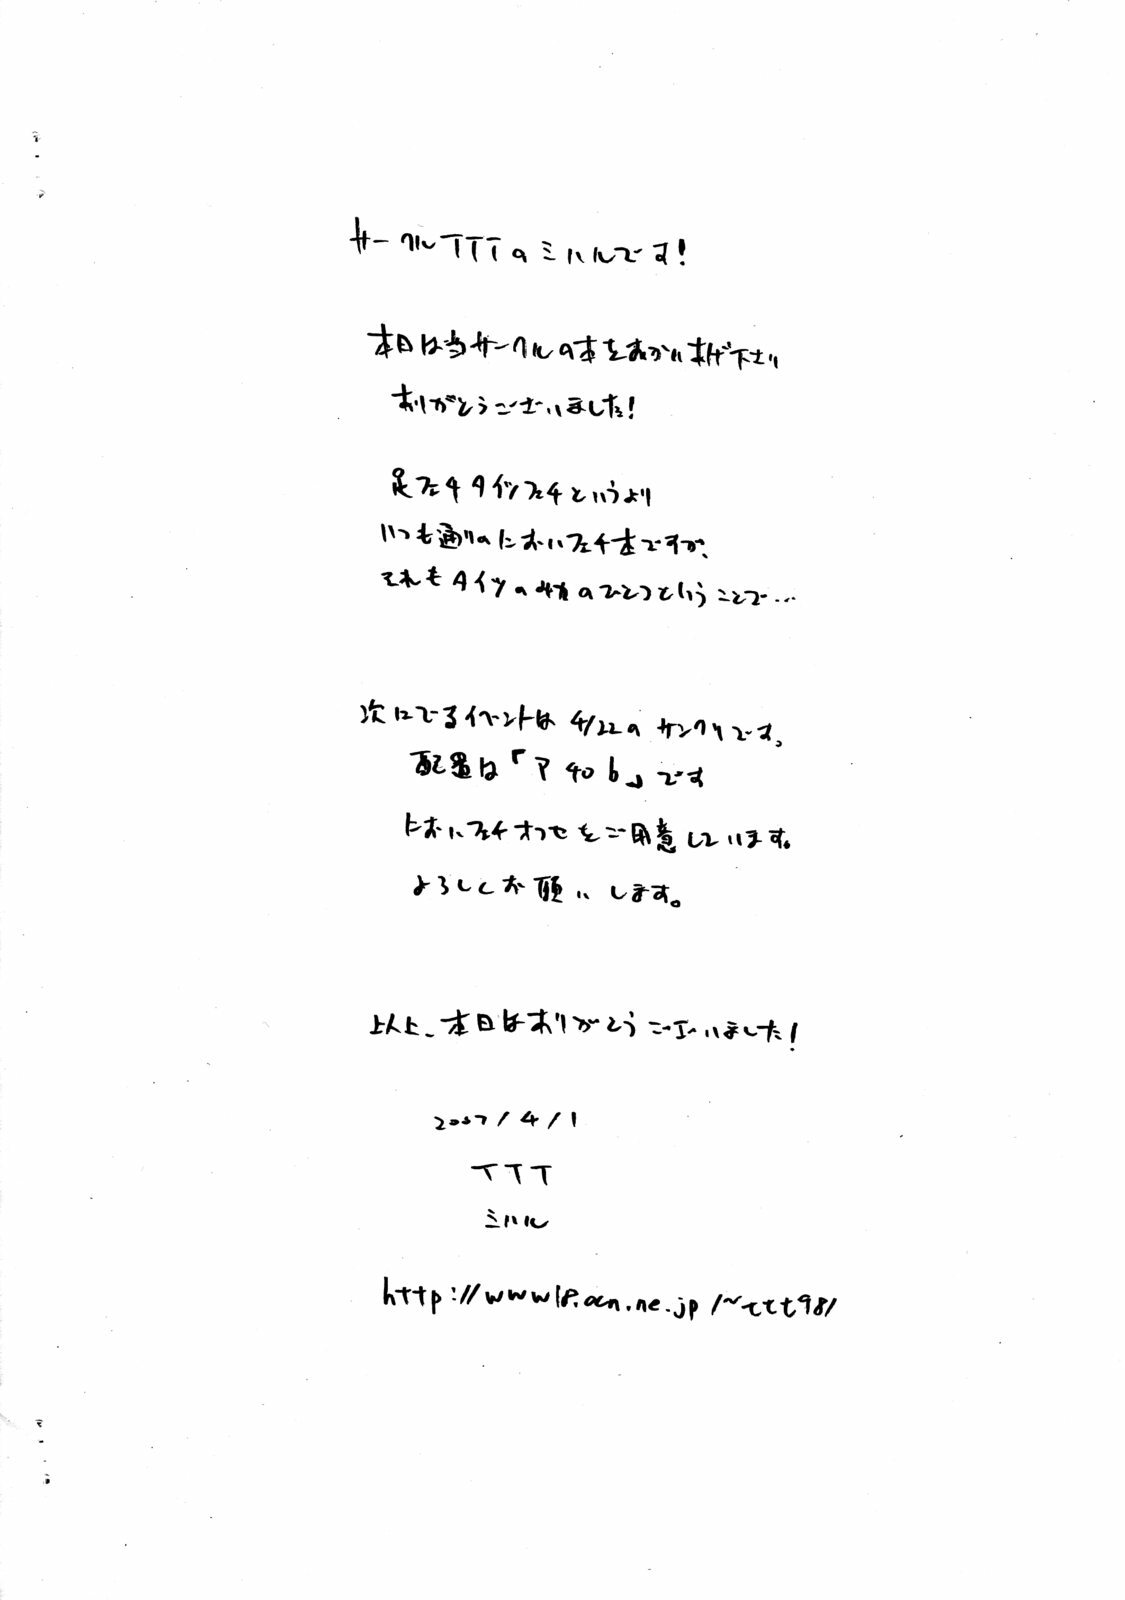 サークルTTTのミハルです!
本日は当サークルの本をお買い上げ下さり
ありがとうございました!
足フェチタイツフェチというより
いつも通りのにおいフェチ本ですが、
それもタイツの のひとつということで…
次にでるイベントは4/22のサンクリです。
配置は「ア40b」です
においフェチオフセをご用意しています。
よろしくお願いします。
以上、本日はありがとうございました!
2007/4/1
TTT
ミハル
http://www18.ocn.ne.jp/~ttt98/